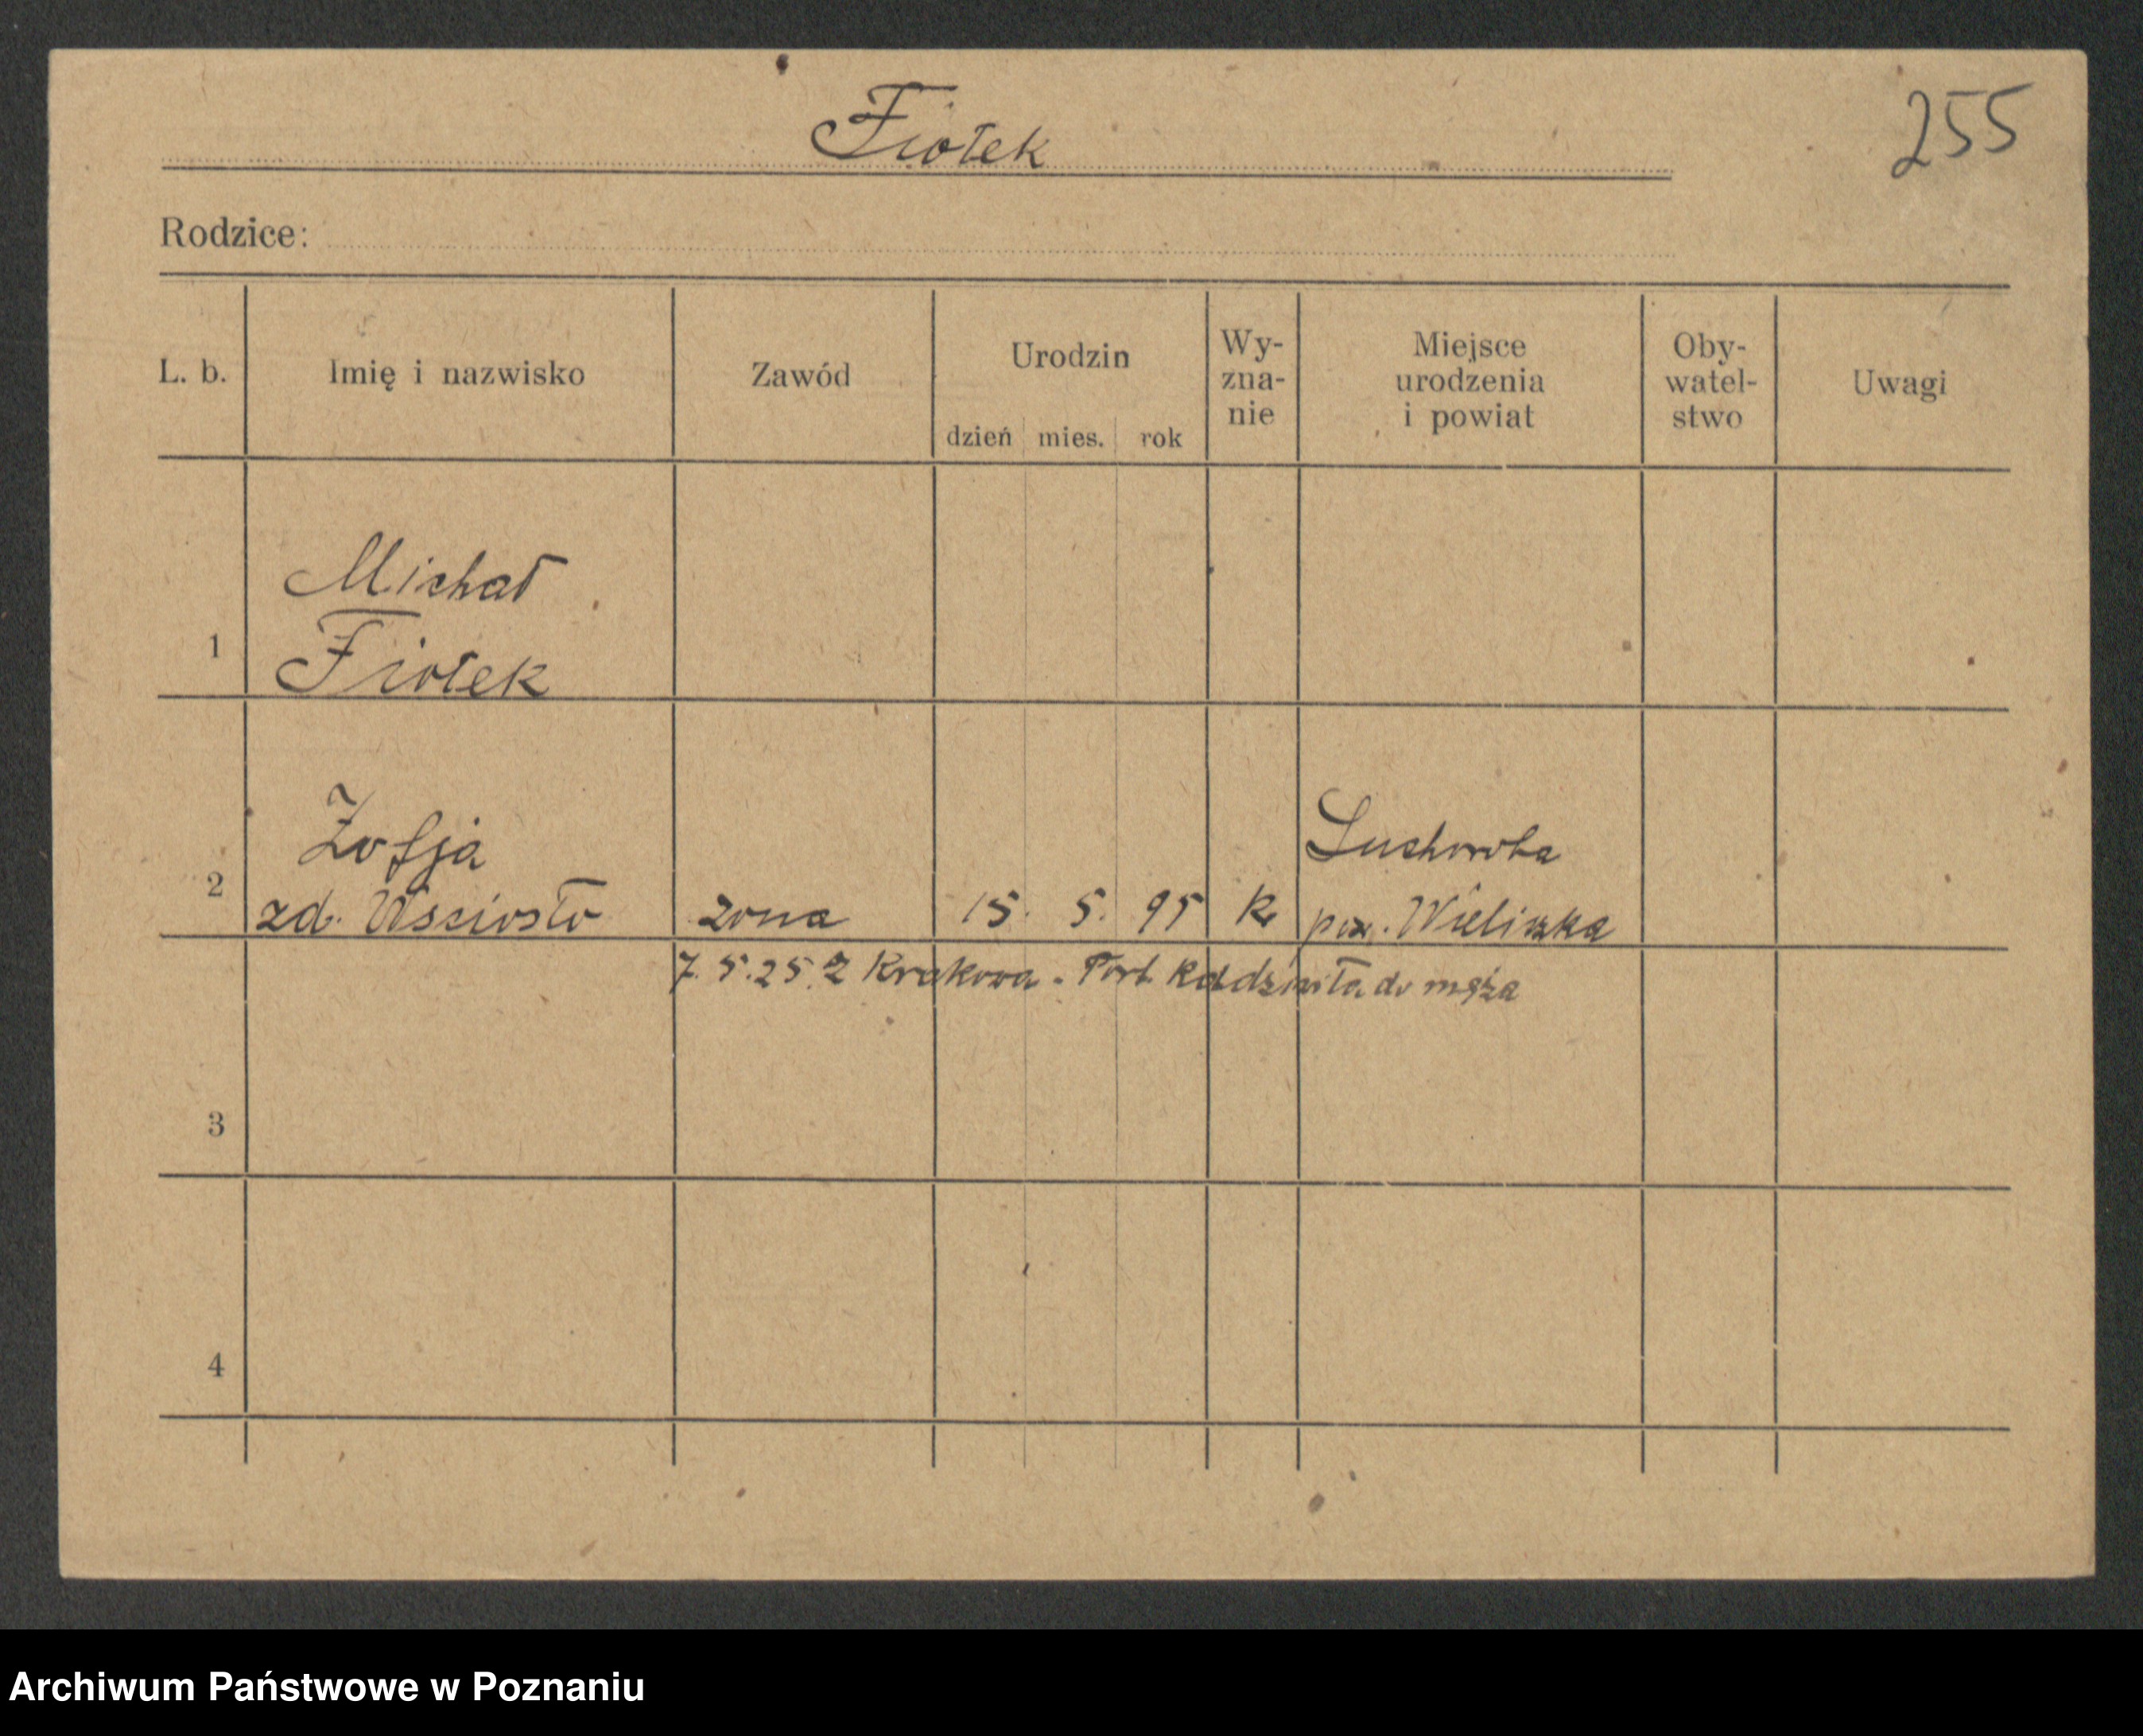 Fiołek
255
Rodzice:
L. b.
Imię i nazwisko
Zawód
Urodzin
dzień mies. rok
Wy-
zna-
nie
Miejsce
urodzenia
i powiat
Oby-
watel-
stwo
Uwagi
1
Michał
Fiołek
2
Zofja
zd.
żona
15. 5. 95
k
pow. Wieliczka
7. 5. 25. z Krakowa - do męża
3
4
Archiwum Państwowe w Poznaniu